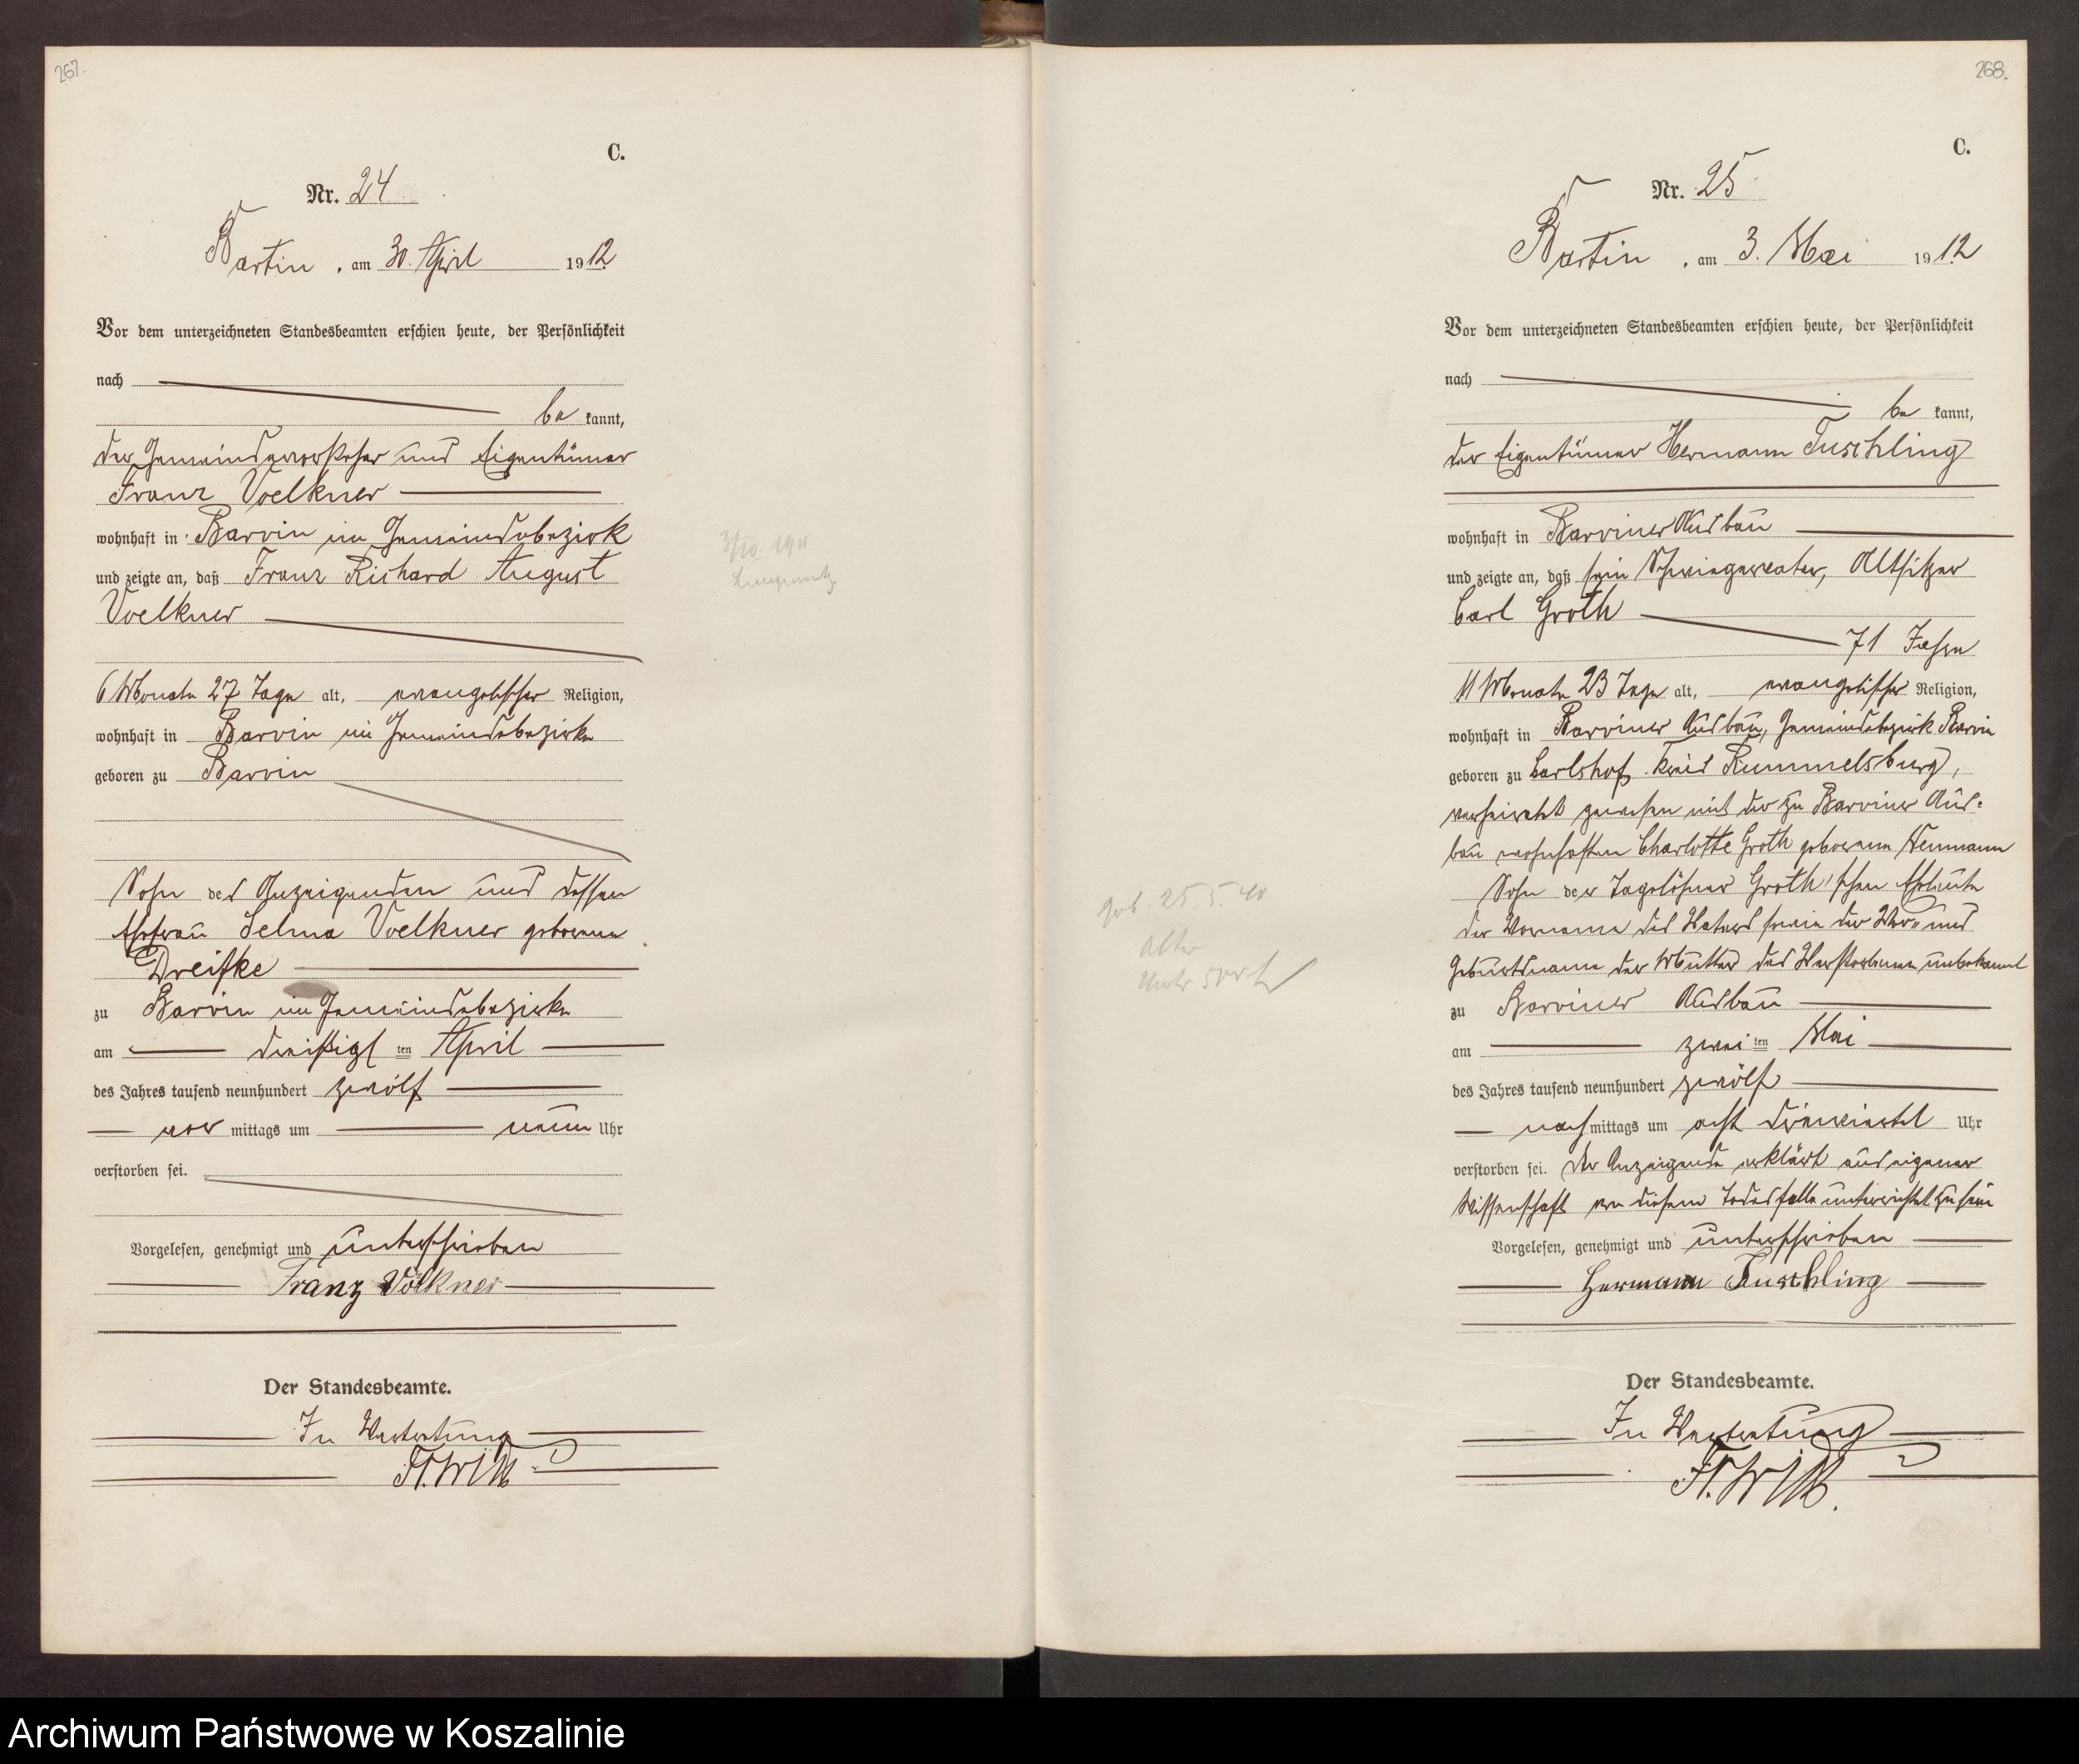 267.
C.
Nr. 24
Bartin, am 30. April 1912
Vor dem unterzeichneten Standesbeamten erschien heute, der Persönlichkeit
nach
be kannt,
der Gemeindevorsteher und Eigentümer
Franz Voelkner
wohnhaft in Barvin im Gemeindebezirk
und zeigte an, daß Franz Richard August
Voelkner
6 Monate 27 Tage alt, evangelischer Religion,
wohnhaft in Barvin im Gemeindebezirke
geboren zu Barvin
Sohn des Anzeigenden und dessen
Ehefrau Selma Voelkner geborene
Dreifke
zu Barvin im Gemeindebezirke
am dreißigsten April
des Jahres tausend neunhundert zwölf
vor mittags um neun Uhr
verstorben sei.
Vorgelesen, genehmigt und unterschrieben
Franz Völkner
Der Standesbeamte.
In Vertretung
3/10. 1911
268.
C.
Nr. 25
Bartin, am 3. Mai 1912
Vor dem unterzeichneten Standesbeamten erschien heute, der Persönlichkeit
nach
be kannt,
der Eigentümer Hermann Tuschling
wohnhaft in Barviner Ausbau
und zeigte an, daß sein Schwiegervater, Altsitzer
Carl Groth
71 Jahre
11 Monate 23 Tage alt, evangelischer Religion,
wohnhaft in Barviner Ausbau, Gemeindebezirk Barvin
geboren zu Carlshof Kreis Rummelsburg,
verheiratet gewesen mit der zu Barviner Aus=
bau wohnhaften Charlotte Groth geborene Neumann
Sohn der Tagelöhner Groth'schen Eheleute
der Vorname des Vaters sowie der Vor- und
Geburtsname der Mutter des Verstorbenen unbekannt
zu Barviner Ausbau
am zweiten Mai
des Jahres tausend neunhundert zwölf
nach mittags um acht dreiviertel Uhr
verstorben sei. Der Anzeigende erklärt aus eigener
Wissenschaft von diesem Todesfalle unterrichtet zu sein
Vorgelesen, genehmigt und unterschrieben
Hermann Tuschling
Der Standesbeamte.
In Vertretung
geb. 25. 5. 40
Archiwum Państwowe w Koszalinie